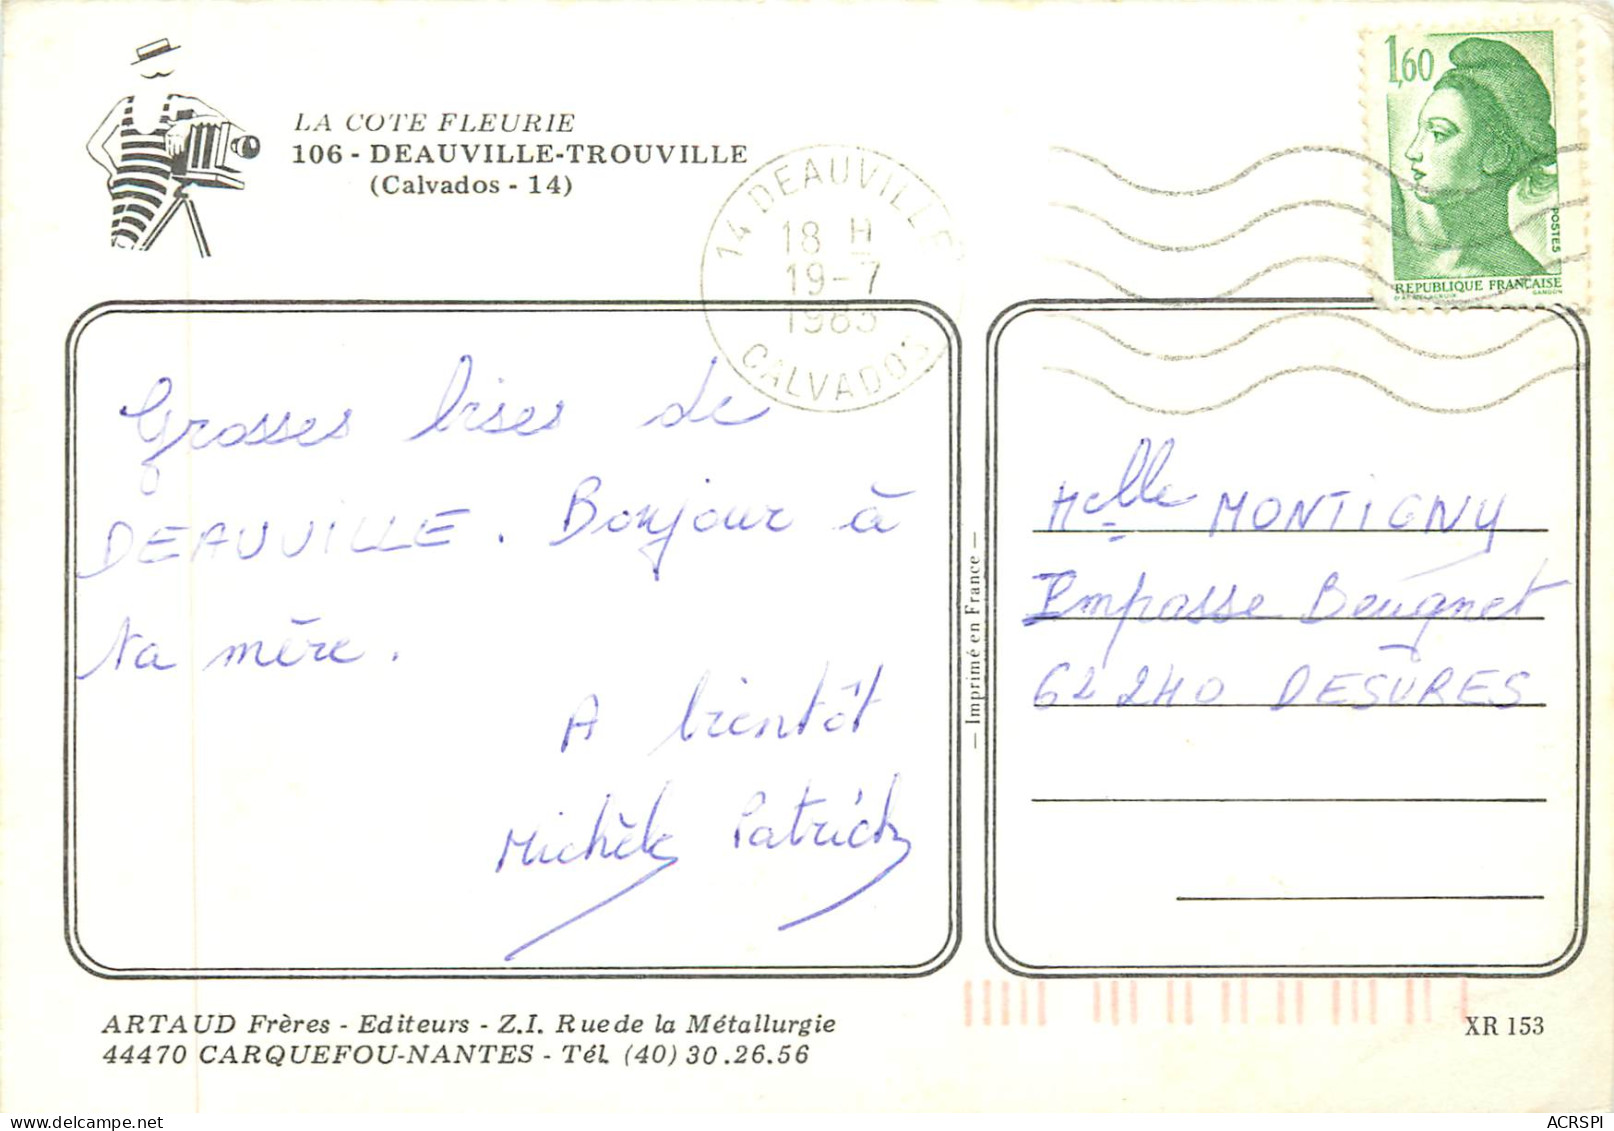 LA COTE FLEURIE
106 - DEAUVILLE-TROUVILLE
(Calvados - 14)
14 DEAUVILLE
18 H
19-7
1983
CALVADOS
1,60
POSTES
REPUBLIQUE FRANÇAISE
D'AP. DELACROIX GANDON
Grosses bises de
DEAUVILLE. Bonjour à
ta mère.
A bientôt
Michèle Patrick
— Imprimé en France —
Melle MONTIGNY
Impasse Beugnet
62240 DESVRES
ARTAUD Frères - Editeurs - Z.I. Rue de la Métallurgie
44470 CARQUEFOU-NANTES - Tél. (40) 30.26.56
XR 153
ACRSPI